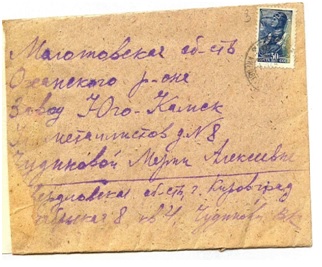 Молотовская область
Оханского р-она
Завод Юго-Камск
Металлистов д №8
Чудиновой Марии Алексеевне
Свердловская область г. Кировград
8 кв 4, Чудинов
30